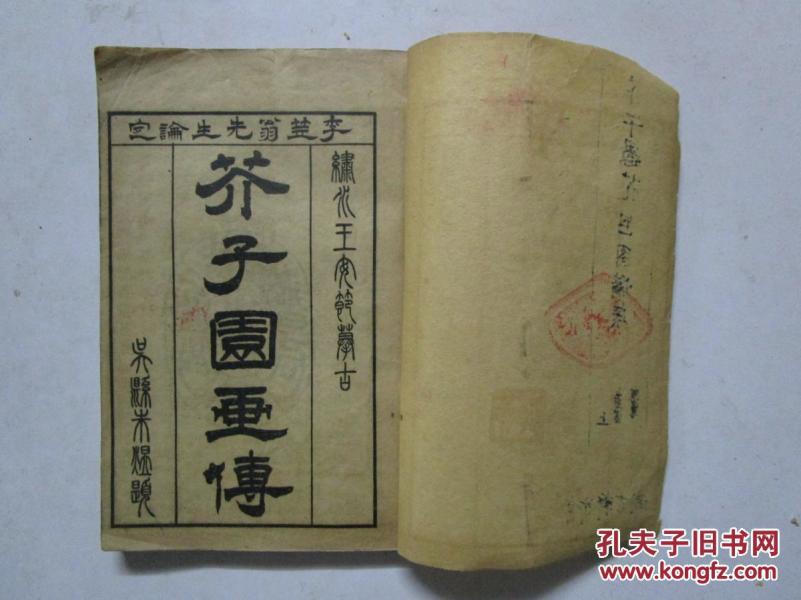 李笠翁先生論定
繡水王安節摹古
芥子園画傳
吳縣朱煜題
孔夫子旧书网
www.kongfz.com